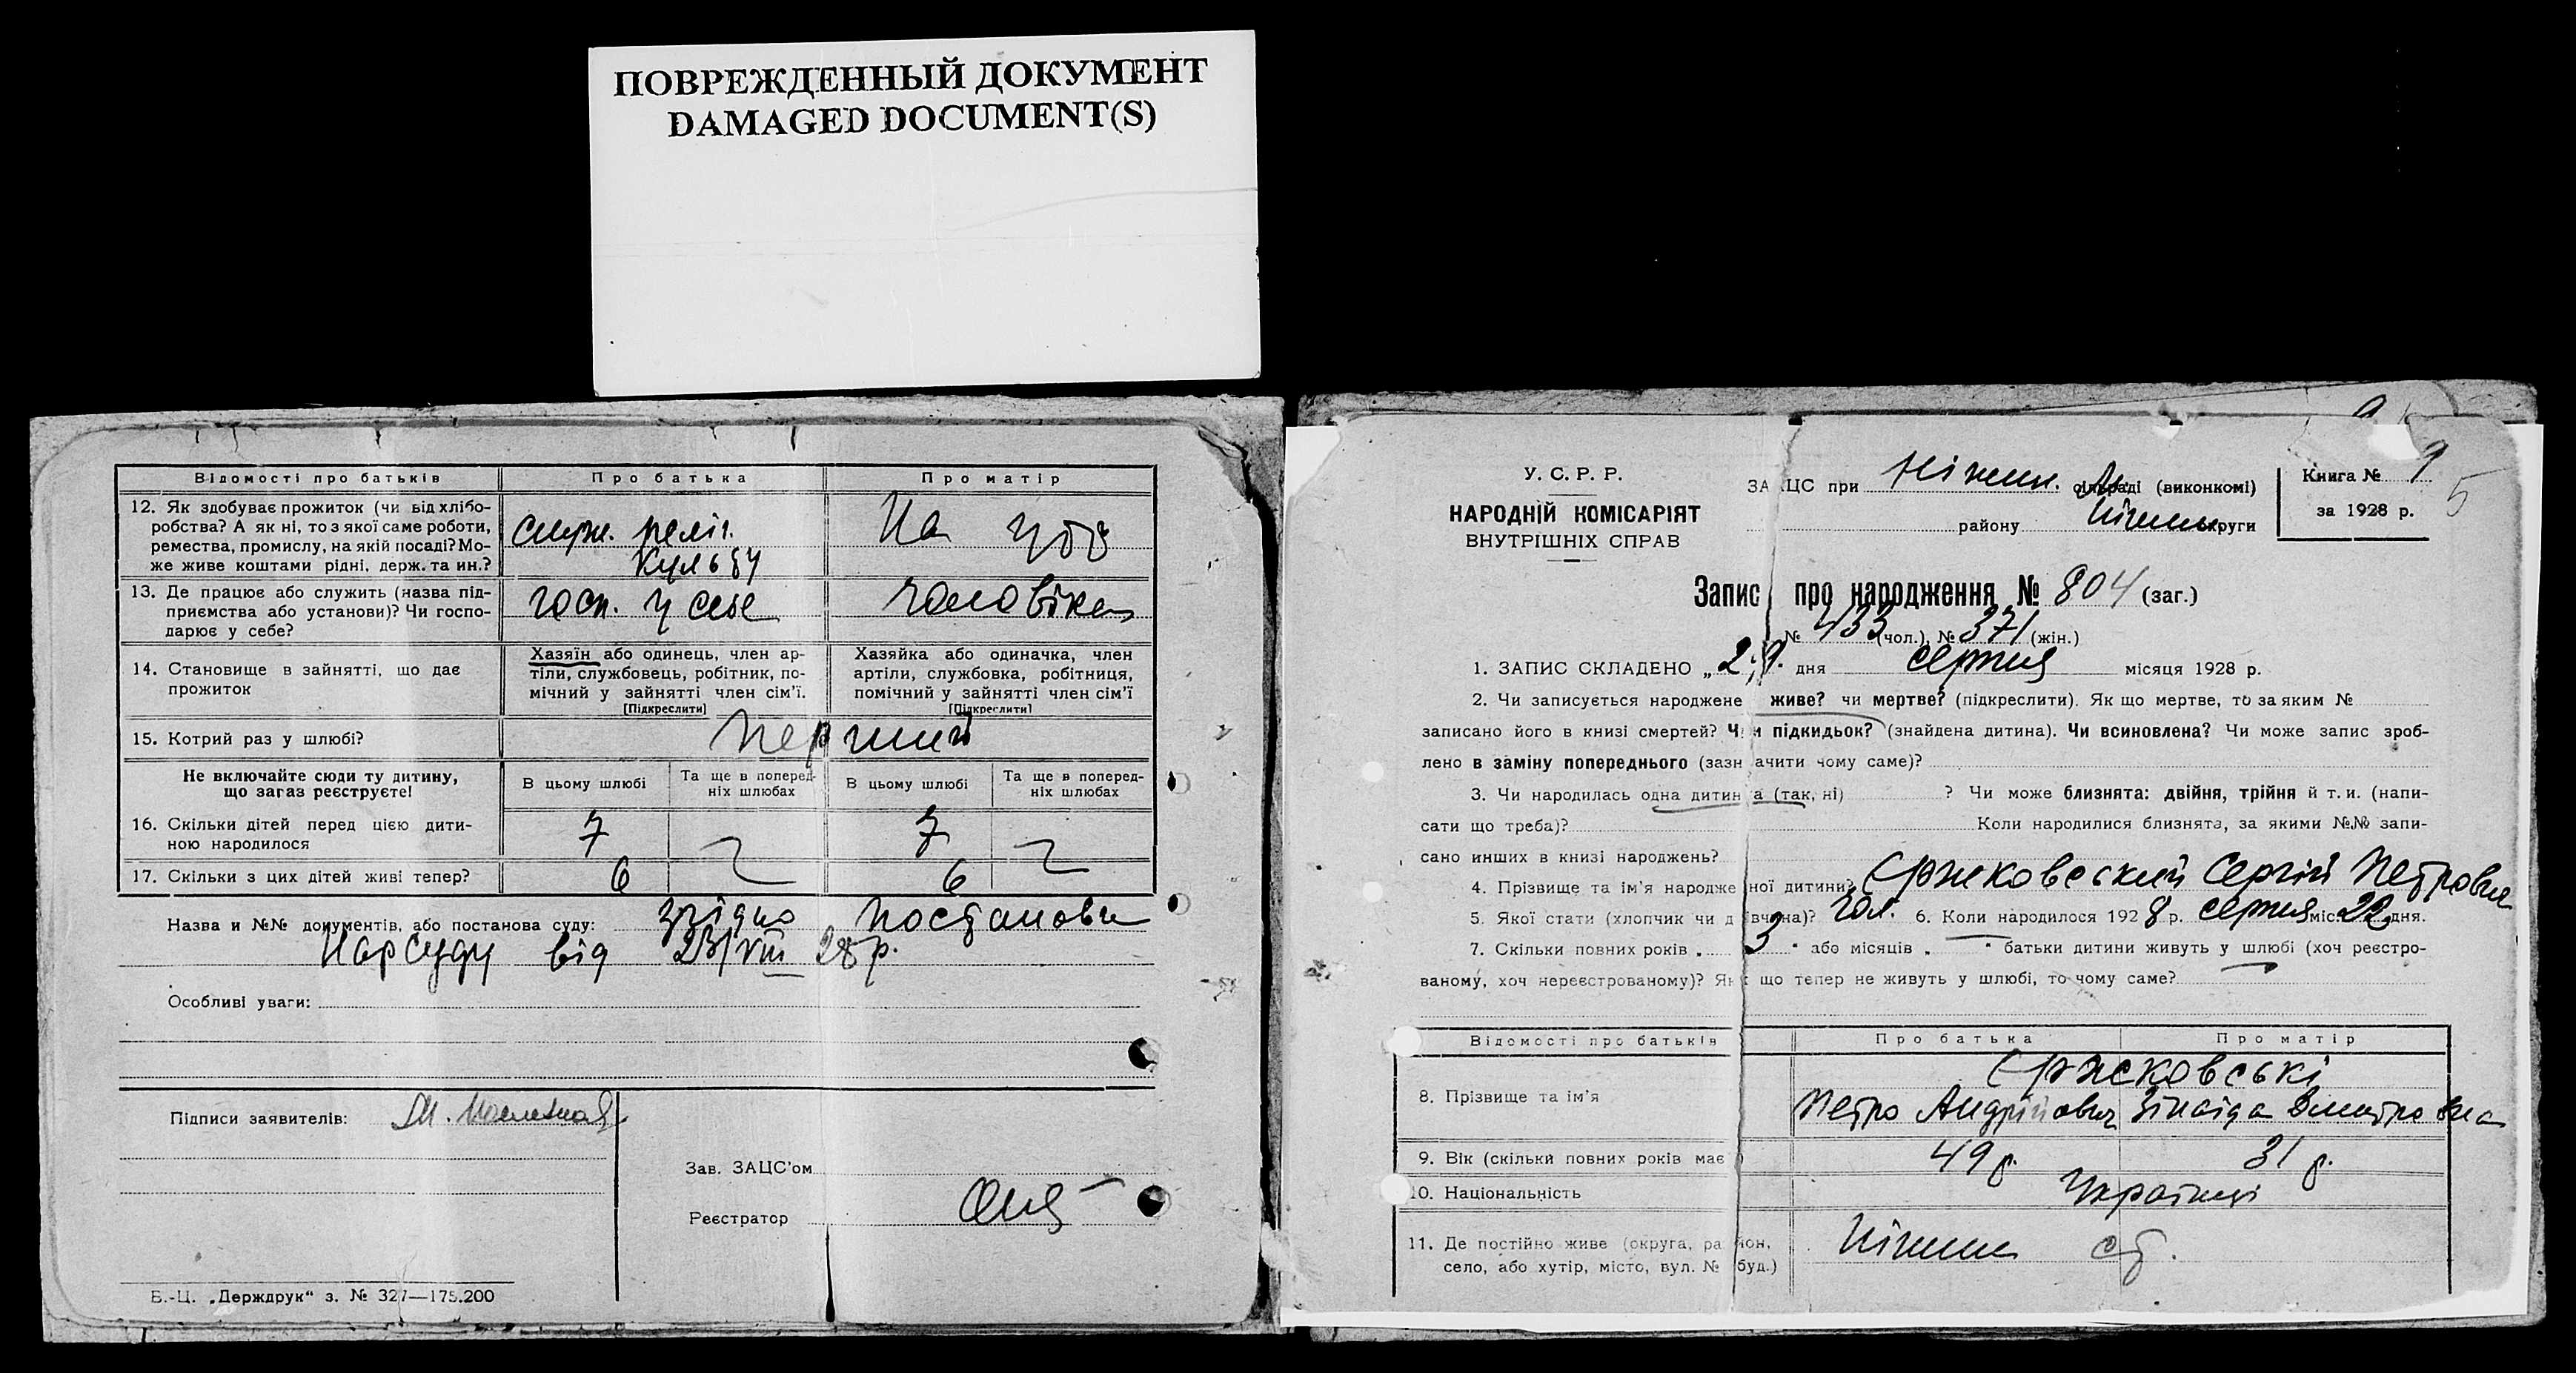 ПОВРЕЖДЕННЫЙ ДОКУМЕНТ
DAMAGED DOCUMENT(S)
Відомості про батьків
Про батька
Про матір
12. Як здобуває прожиток (чи від хлібо-
робства? А як ні, то з якої саме роботи,
ремества, промислу, на якій посаді? Мо-
же живе коштами рідні, держ. та ин.?
служ. реліг.
культу
На утр
13. Де працює або служить (назва під-
приємства або установи)? Чи госпо-
дарює у себе?
госп. у себе
чоловіка
14. Становище в зайнятті, що дає
прожиток
Хазяїн або одинець, член ар-
тіли, службовець, робітник, по-
мічний у зайнятті член сім'ї.
[Підкреслити]
Хазяйка або одиначка, член
артіли, службовка, робітниця,
помічний у зайнятті член сім'ї
[Підкреслити]
15. Котрий раз у шлюбі?
перший
Не включайте сюди ту дитину,
що зараз реєструєте!
В цьому шлюбі
Та ще в поперед-
ніх шлюбах
В цьому шлюбі
Та ще в поперед-
ніх шлюбах
16. Скільки дітей перед цією дити-
ною народилося
7
7
17. Скільки з цих дітей живі тепер?
6
6
Назва и №№ документів, або постанова суду: згідно постанови
Нарсуду від 23/VIII 28 р.
Особливі уваги:
Підписи заявителів: М.
Зав. ЗАЦС'ом
Реєстратор
Б.-Ц. „Держдрук“ з. № 327—175.200
У. С. Р. Р.
НАРОДНІЙ КОМІСАРІЯТ
ВНУТРІШНІХ СПРАВ
ЗАЦС при Ніжин. сільраді (виконкомі)
району Ніжин округи
Книга № 9
за 1928 р.
5
Запис про народження № 804 (заг.)
№ 433 (чол.), № 371 (жін.)
1. ЗАПИС СКЛАДЕНО „29. дня серпня місяця 1928 р.
2. Чи записується народжене живе? чи мертве? (підкреслити). Як що мертве, то за яким №
записано його в книзі смертей? Чи підкидьок? (знайдена дитина). Чи всиновлена? Чи може запис зроб-
лено в заміну попереднього (зазначити чому саме)?
3. Чи народилась одна дитина (так, ні) ? Чи може близнята: двійня, трійня й т. и. (напи-
сати що треба)? Коли народилися близнята, за якими №№ запи-
сано инших в книзі народжень?
4. Прізвище та ім'я народженої дитини? Єржковський Сергій Петрович
5. Якої стати (хлопчик чи дівчина)? чол. 6. Коли народилося 1928 р. серпня міс. 22 дня.
7. Скільки повних років „ 3 “ або місяців „ “ батьки дитини живуть у шлюбі (хоч реєстро-
ваному, хоч нереєстрованому)? Як що тепер не живуть у шлюбі, то чому саме?
Відомості про батьків
Про батька
Про матір
8. Прізвище та ім'я
Єржковські
Петро Андрійович
Зінаїда Дмитровна
9. Вік (скільки повних років має)
49 р.
31 р.
10. Національність
Українці
11. Де постійно живе (округа, район,
село, або хутір, місто, вул. № буд.)
Ніжин ст.